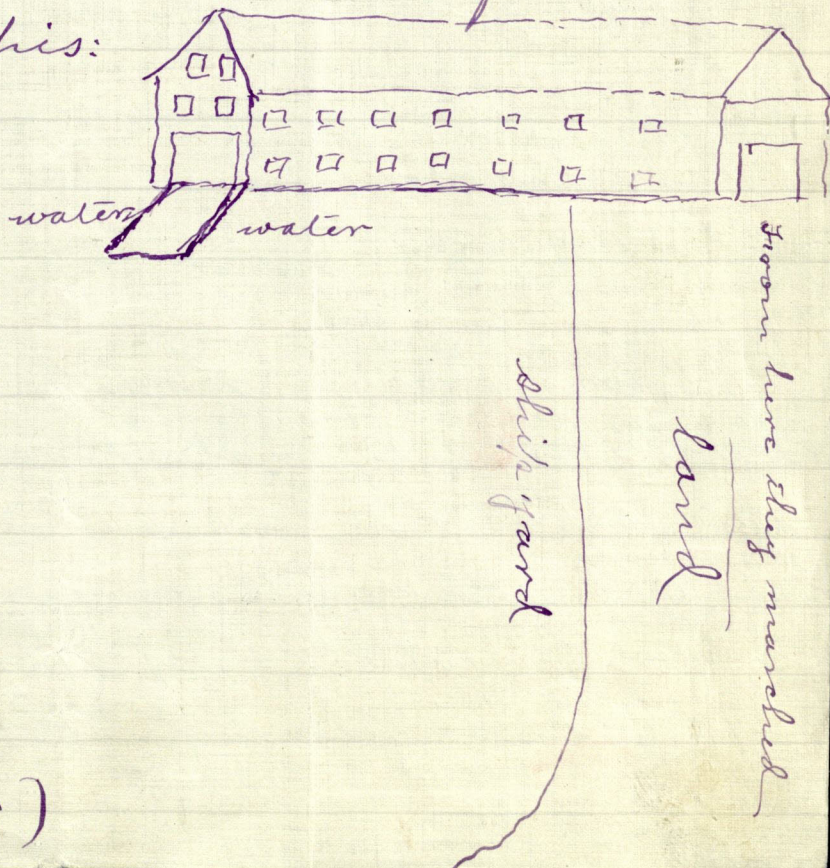 his:
water
water
ship yard
land
From here they marched
)